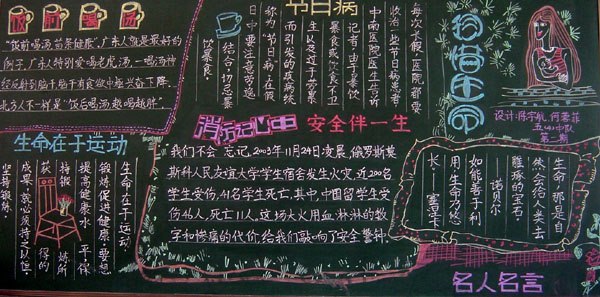 饭前喝汤
"饭前喝汤,苗条健康",广东人就是最好的
例子,广东特别爱喝老虎汤,一喝汤神
经反射到脑干脑干有食欲中枢兴奋下降.
北方人不一样是"饭后喝汤越喝越胖".
节日病
每次长假,医院都要
收治一些节日病患者
中南医院医生告诉
记者,由于暴饮
暴食,饮食不卫
生以及过于劳累
而引发的疾病统
称为"节日病"在假
日中要注意劳逸
结合,切忌暴
饮暴食.
珍惜生命
设计:陈宇航
五(4)中队
第二期
生命在于运动
生命在于运动
锻炼促进健康 要想
提高健康水平,保
持锻炼所
获得的
成果,就必须持之以恒
坚持锻炼.
消防记心中 安全伴一生
我们不会忘记,2003年11月24日凌晨,俄罗斯莫
斯科人民友谊大学学生宿舍发生火灾,近200名
学生受伤,41名学生死亡.其中,中国留学生受
伤46人,死亡11人.这场大火用血淋淋的数
字和惨痛的代价,给我们敲响了安全警钟.
生命,那是自
然会给人类去
雕琢的宝石
诺贝尔
如能善于利
用,生命乃悠
长—塞涅卡
名人名言